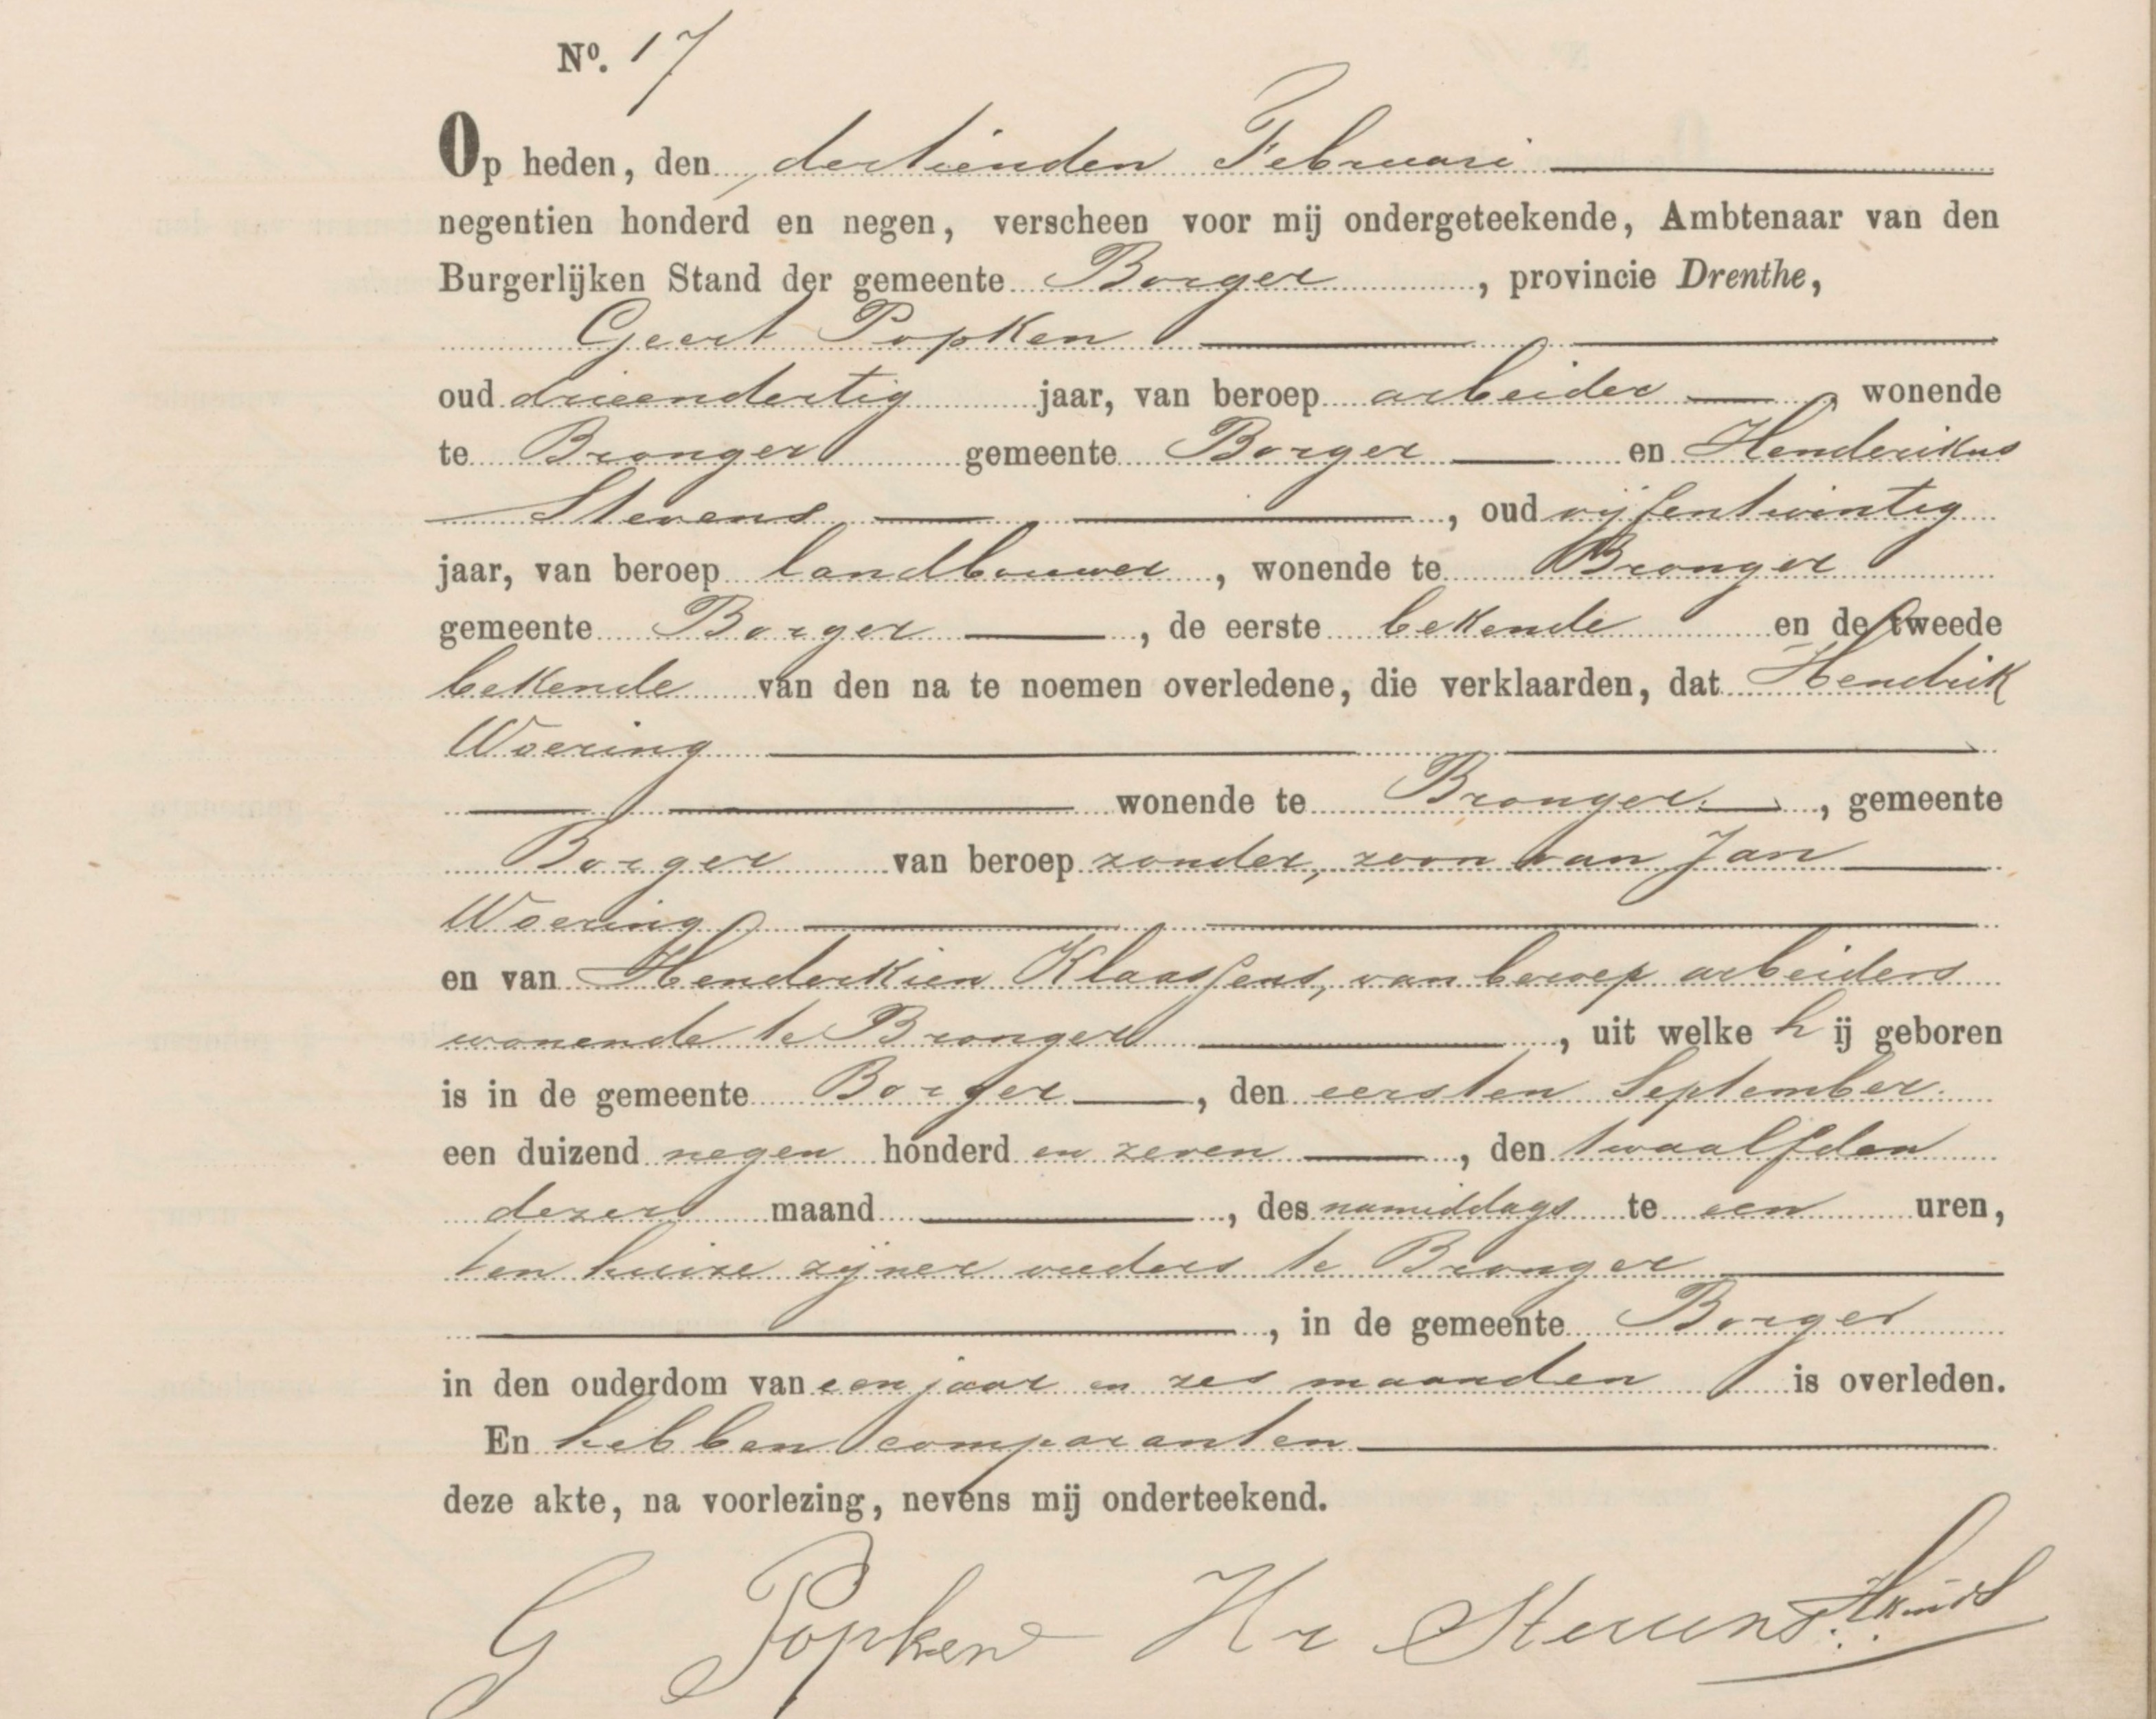 Nº. 17
Op heden, den dertienden Februari
negentien honderd en negen, verscheen voor mij ondergeteekende, Ambtenaar van den
Burgerlijken Stand der gemeente Borger, provincie Drenthe,
Geert Popken
oud drieendertig jaar, van beroep arbeider, wonende
te Bronger gemeente Borger en Henderikus
Stevens, oud vijfentwintig
jaar, van beroep landbouwer, wonende te Bronger
gemeente Borger, de eerste bekende en de tweede
bekende van den na te noemen overledene, die verklaarden, dat Hendrik
Woering
wonende te Bronger, gemeente
Borger van beroep zonder, zoon van Jan
Woering
en van Henderkien Klaassens, van beroep arbeiders
wonende te Bronger, uit welke hij geboren
is in de gemeente Borger, den eersten September
een duizend negen honderd en zeven, den twaalfden
dezer maand, des namiddags te een uren,
ten huize zijner ouders te Bronger
, in de gemeente Borger
in den ouderdom van een jaar en zes maanden is overleden.
En hebben comparanten
deze akte, na voorlezing, nevens mij onderteekend.
G Popken Hr Stevens